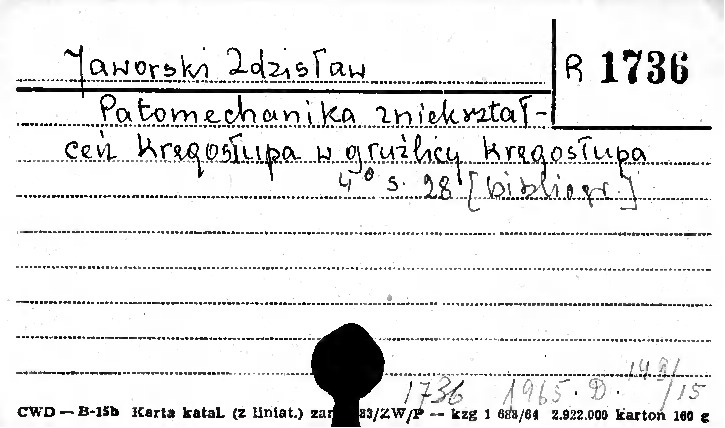 Jaworski Zdzisław
R 1736
Patomechanika zniekształ-
ceń kręgosłupa w gruźlicy kręgosłupa
4° s. 28 [bibliogr.]
1736 1965. D. 149/15
CWD — B-15b Karta katal. (z liniat.) zam 83/ZW/P — kzg 1 688/64 2.922.000 karton 160 g